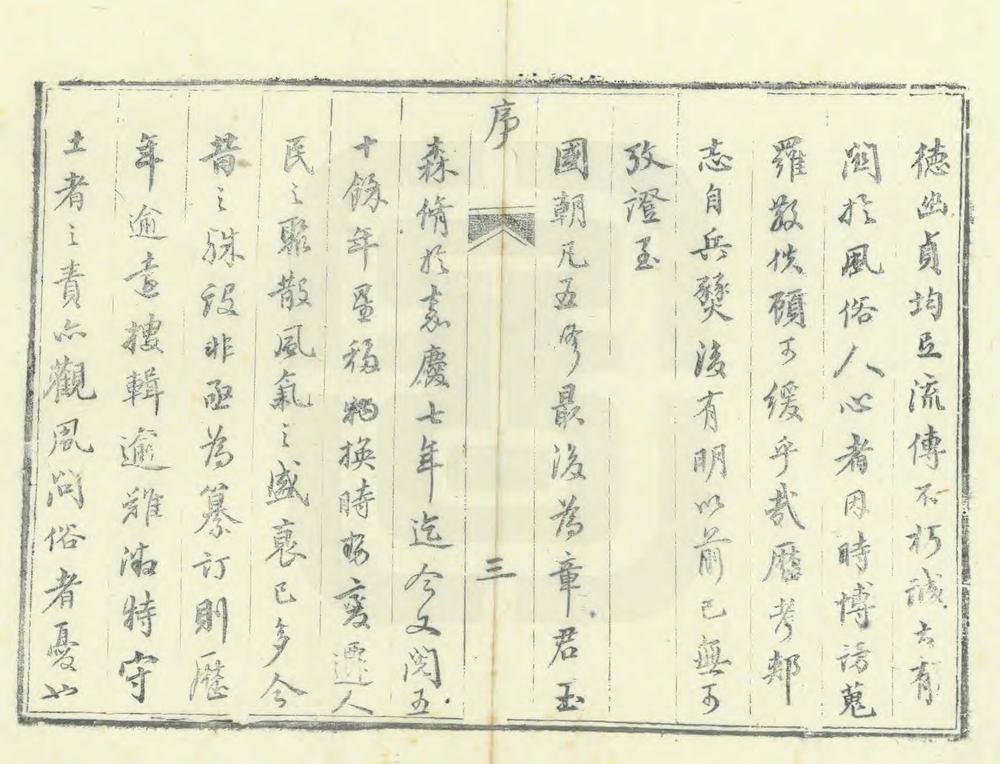 德幽貞均足流傳不朽誠古有
關於風俗人心者因時博訪蒐
羅散佚顧可緩乎哉歷考郏
志自兵燹後有明以前已無可
攷證至
國朝凡五修最後為章君玉
序
三
森脩於嘉慶七年迄今又閱五
十餘年星移物換時勢變遷人
民之聚散風氣之盛衰已多今
昔之殊設非亟為纂訂則歷
年逾遠摟輯逾難滿特守
土者之責亦觀風問俗者憂也